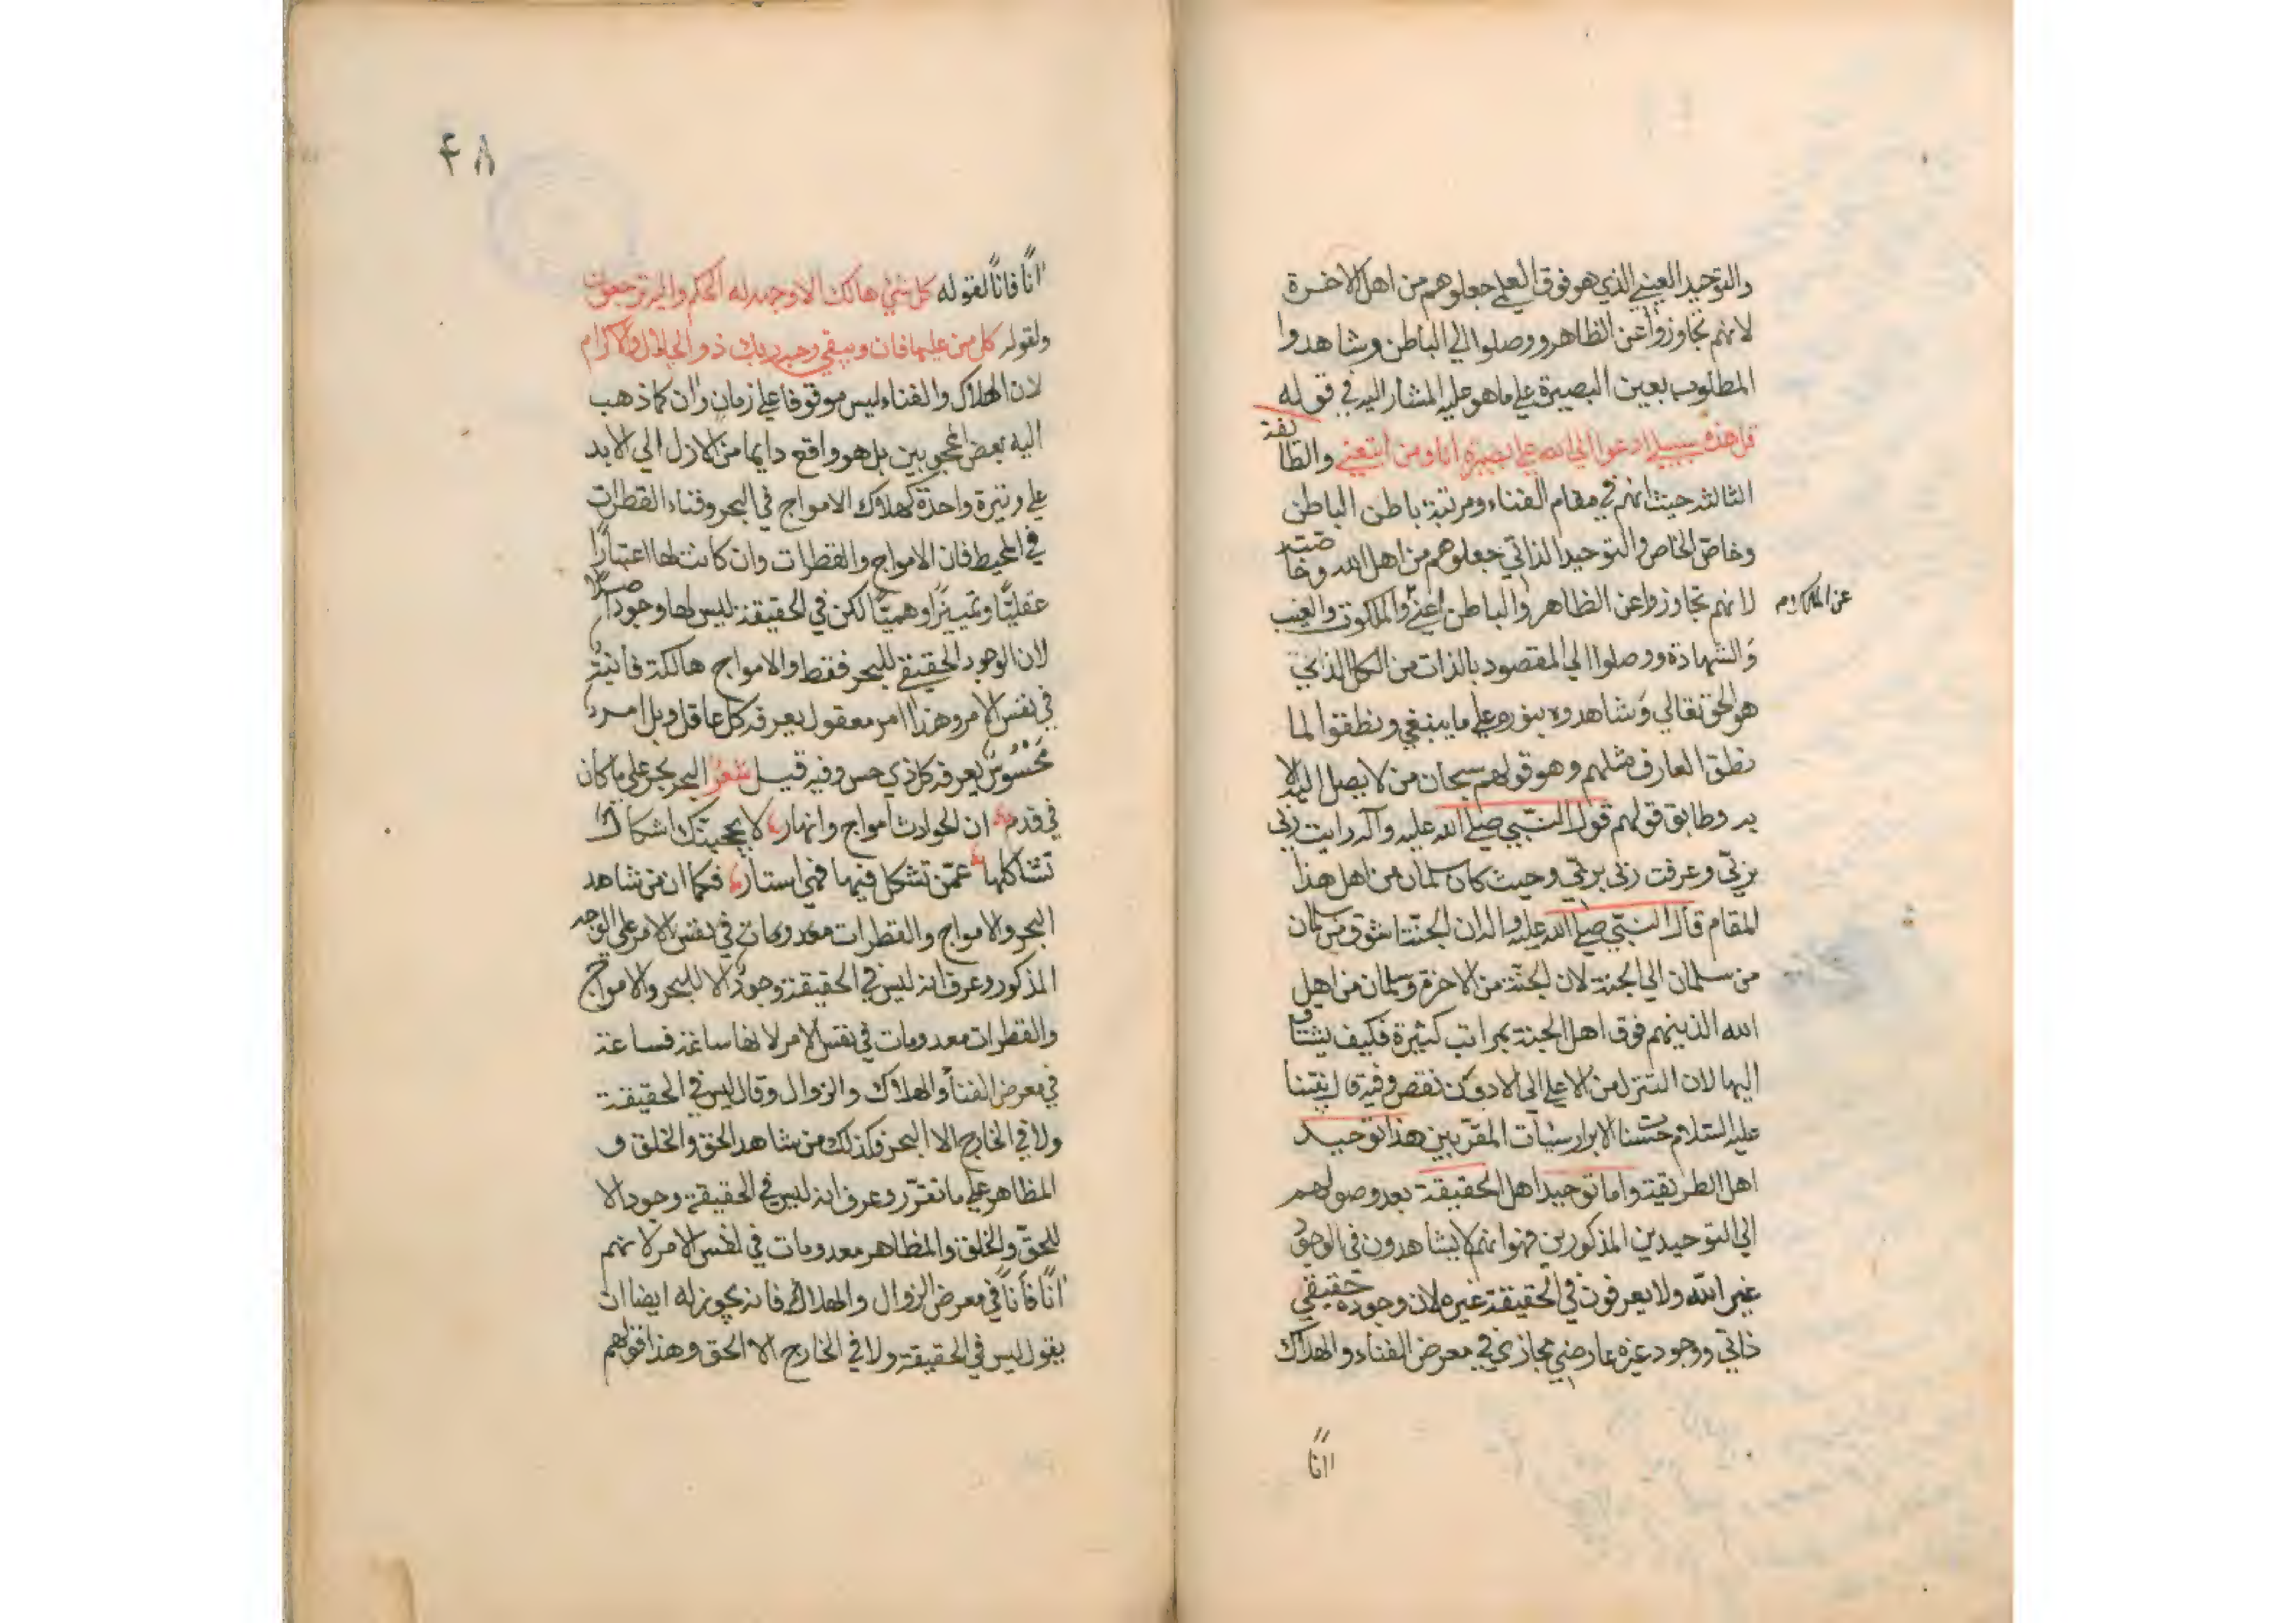 والتوحيد العيني الذي هو فوق العلمي جعلوهم من اهل الاخرة
لانهم تجاوزوا عن الظاهر ووصلوا الي الباطن وشاهدوا
المطلوب بعين البصيرة علي ما هو عليه المشار اليه في قوله
قل هذه سبيلي ادعوا الي الله علي بصيرة انا ومن اتبعني والطائفة
الثالثة حيث انهم في مقام الفناء ومرتبة باطن الباطن
وخاص الخاص والتوحيد الذاتي جعلوهم من اهل الله وخاصته
لانهم تجاوزوا عن الظاهر والباطن اعني والملكوت والغيب
عن الملك
والشهادة ووصلوا الي المقصود بالذات من الكل الذي
هو الحق تعالي وشاهدوه بنوره علي ما ينبغي ونطقوا لما
نطق العارف مثلهم وهو قولهم سبحان من لا يصل اليه الا
به وطابق قولهم قول النبي صلي الله عليه وآله رايت ربي
بربي وعرفت ربي بربي وحيث كان سلمان من اهل هذا
المقام قال النبي صلي الله عليه وآله ان الجنة اشوق من سلمان
من سلمان الي الجنة لان الجنة من الاخرة وسلمان من اهل
الله الذينهم فوق اهل الجنة بمراتب كثيرة فكيف يشتاق
اليها لان التنزل من الاعلي الي الادون نقص وفيه قال نبينا
عليه السلام حسنات الابرار سيئات المقربين هذا توحيد
اهل الطريقة واما توحيد اهل الحقيقة بعد وصولهم
الي التوحيدين المذكورين فهو انهم لا يشاهدون في الوجود
غير الله ولا يعرفون في الحقيقة غيره لان وجوده حقيقي
ذاتي ووجود غيره عارضي مجازي في معرض الفناء والهلاك
اناً
۴۸
اناً فاناً لقوله كل شئ هالك الا وجهه له الحكم واليه ترجعون
ولقوله كل من عليها فان ويبقي وجه ربك ذو الجلال والاكرام
لان الهلاك والفناء ليس موقوفا علي زمان وان كما ذهب
اليه بعض المحجوبين بل هو واقع دايما من الازل الي الابد
علي وتيرة واحدة كهلاك الامواج في البحر وفناء القطرات
في المحيط فان الامواج والقطرات وان كانت لها اعتباراً
عقلياً وتمييزاً وهمياً لكن في الحقيقة ليس لها وجود اصلاً
لان الوجود الحقيقي للبحر فقط والامواج هالكة فانية
في نفس الامر وهذا امر معقول يعرفه كل عاقل وبل امر
محسوس يعرفه كل ذي حس وفيه قيل شعر البحر بحر علي ما كان
في قدم ان الحوادث امواج وانهار لا يحجبنك اشكال
تشاكلها عمن تشكل فيها فهي استار فكما ان من شاهد
البحر والامواج والقطرات معدومات في نفس الامر علي الوجه
المذكور وعرف انه ليس في الحقيقة وجود الا للبحر والامواج
والقطرات معدومات في نفس الامر لانها ساعة فساعة
في معرض الفناء والهلاك والزوال وقال ليس في الحقيقة
ولا في الخارج الا البحر فكذلك من شاهد الحق والخلق و
المظاهر علي ما تقرر وعرف انه ليس في الحقيقة وجود الا
للحق والخلق والمظاهر معدومات في نفس الامر لانهم
اناً فاناً في معرض الزوال والهلاك فانه يجوز له ايضا ان
يقول ليس في الحقيقة ولا في الخارج الا الحق وهذا قولهم